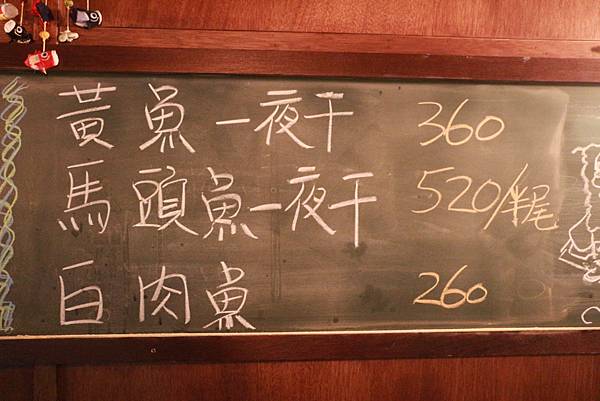 黃魚一夜干 360
馬頭魚一夜干 520/半尾
白肉魚 260